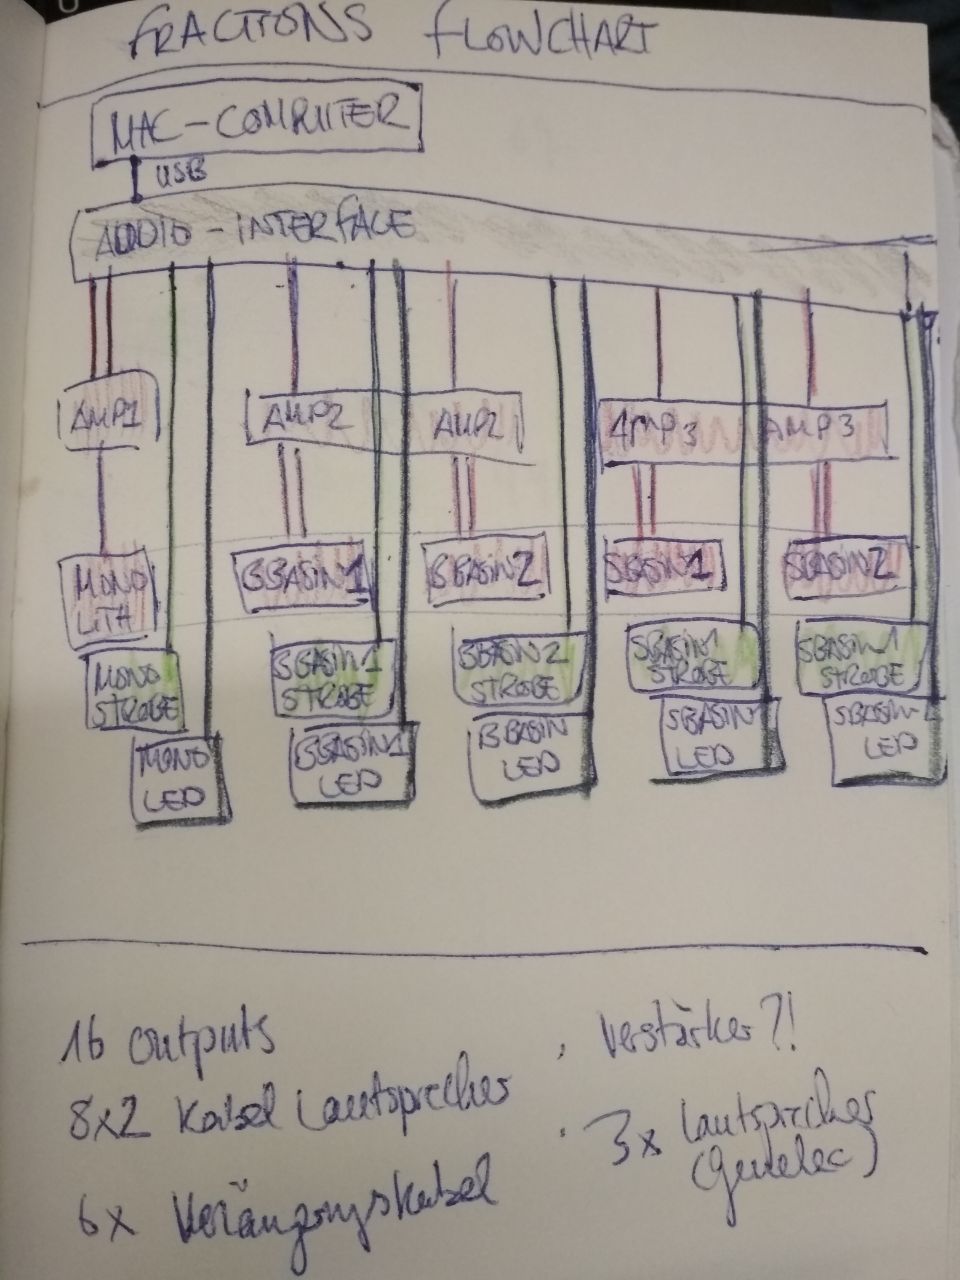 FRACTIONS FLOWCHART
MAC-COMPUTER
USB
AUDIO-INTERFACE
AMP1
AMP2
AMP2
AMP3
AMP3
MONO
LITH
BBASIN1
BBASIN2
SBASIN1
SBASIN2
MONO
STROBE
BBASIN1
STROBE
BBASIN2
STROBE
SBASIN1
STROBE
SBASIN1
STROBE
MONO
LED
BBASIN1
LED
BBASIN
LED
SBASIN
LED
SBASIN
LED
16 outputs
8x2 Kabel Lautsprecher
6x
Verstärker?!
3x Lautsprecher
(genelec)